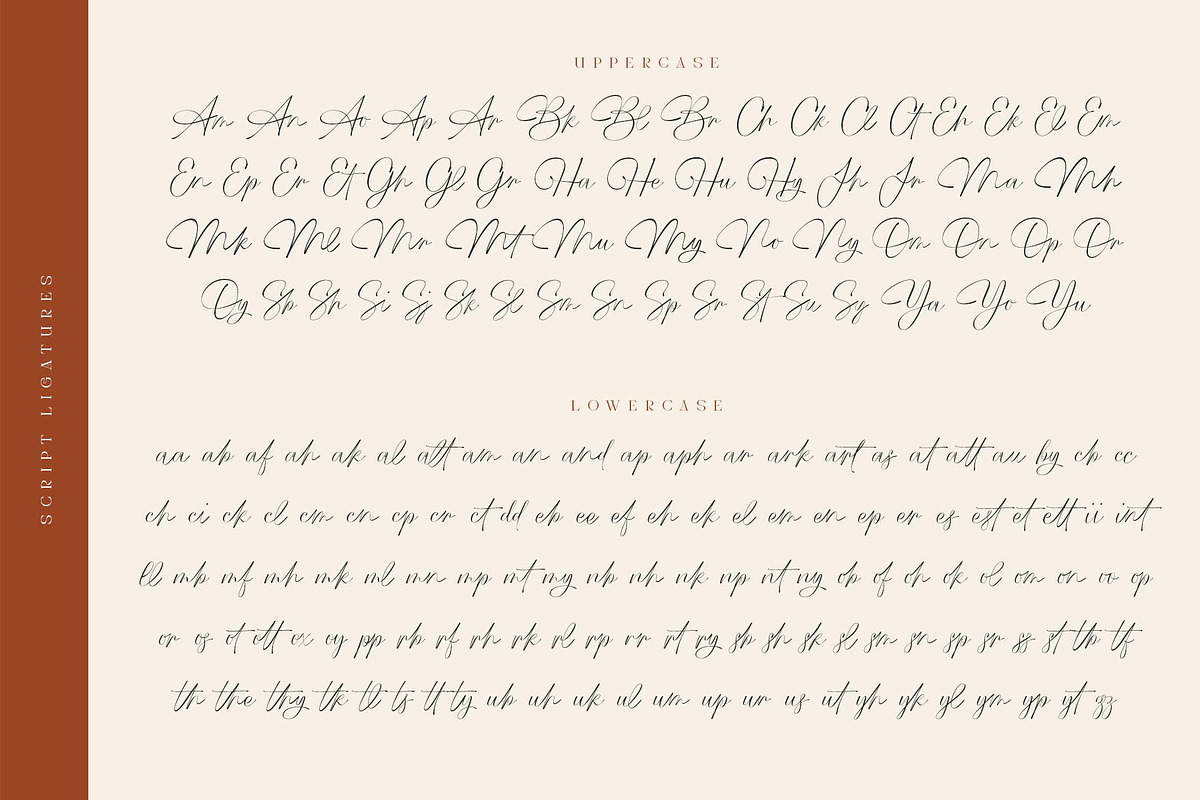 SCRIPT LIGATURES
UPPERCASE
Am An Ao Ap Ar Bk Bl Br Ch Ck Cl Ct Eh Ek El Em
En Ep Er Et Gh Gl Gr Ha He Hu Hy Jh Jr Ma Mh
Mk Ml Mr Mt Mu My No Ny Om On Op Or
Oy Sb Sh Si Sj Sk Sl Sm Sn Sp Sr St Su Sy Ya Yo Yu
LOWERCASE
aa ab af ah ak al alt am an and ap aph ar ark art as at att au by cb cc
ch ci ck cl cm cn cp cr ct dd eb ee ef eh ek el em en ep er es est et ett ii int
ll mb mf mh mk ml mn mp mt my nb nh nk np nt ny ob of oh ok ol om on oo op
or os ot ott ox oy pp rb rf rh rk rl rp rr rt ry sb sh sk sl sm sn sp sr ss st tb tf
th the thy tk tl ts tt ty ub uh uk ul um up ur us ut yh yk yl ym yp yt zz